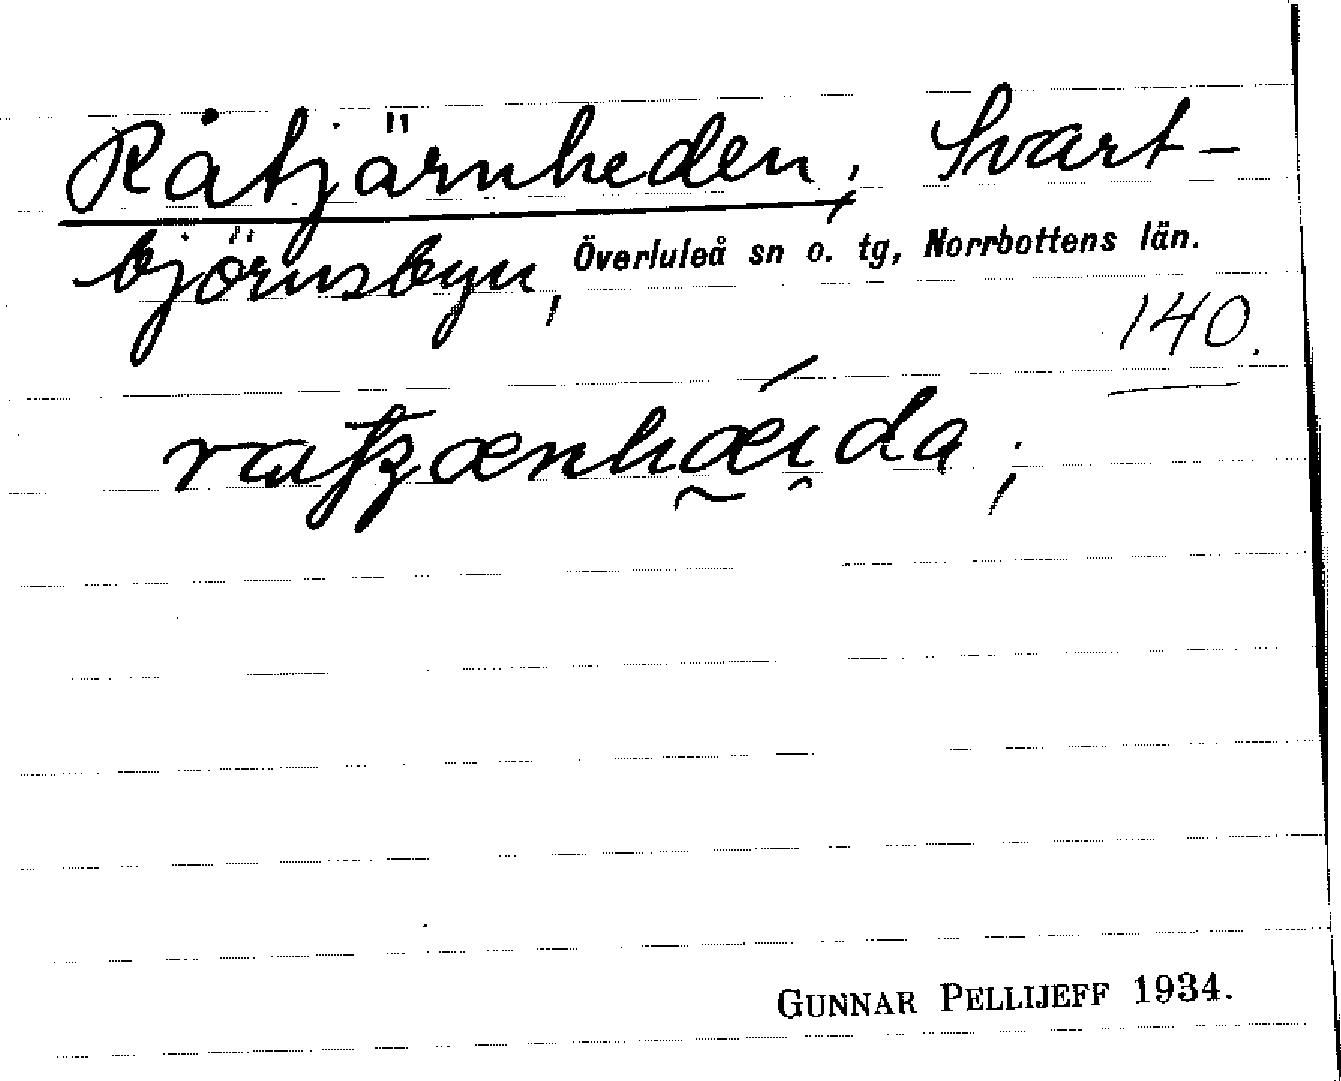 Råtjärnheden; Svart-
björnsbyn, Överluleå sn o. tg, Norrbottens län.
140.
GUNNAR PELLIJEFF 1934.